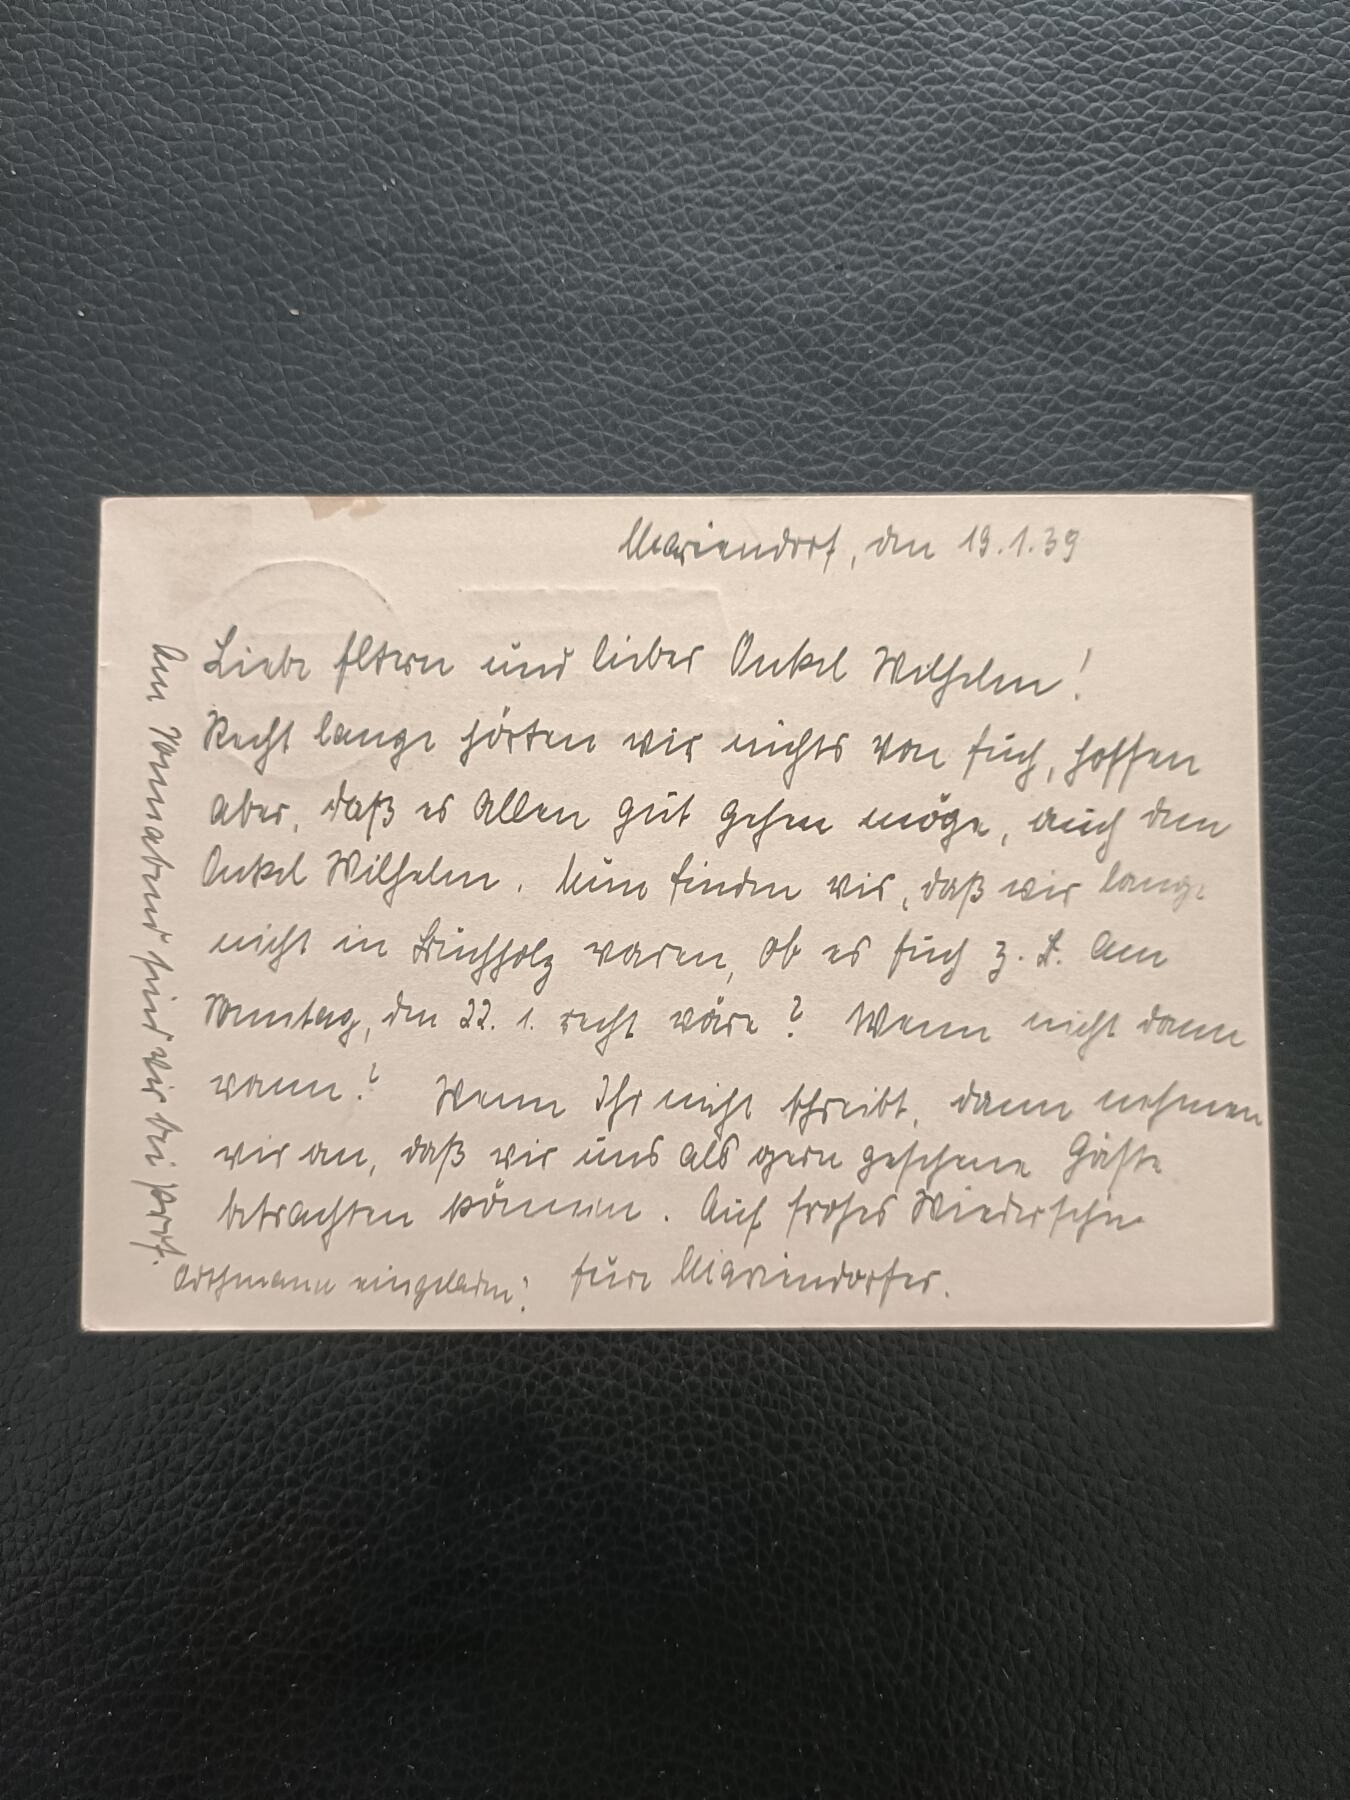 Mariendorf, den 19.1.39
Liebe Eltern und lieber Onkel Wilhelm!
Recht lange hörten wir nichts von Euch, hoffen
aber, daß es Allen gut gehen möge, auch dem
Onkel Wilhelm. Nun finden wir, daß wir lange
nicht in Buchholz waren, Ob es Euch z. B. Am
Sonntag, den 22. 1. recht wäre? Wenn nicht dann
wann? Wenn Ihr nicht schreibt, dann nehmen
wir an, daß wir uns als gern gesehene Gäste
betrachten können. Auf frohes Wiedersehn
Eure Mariendorfer.
Am Sonnabend sind wir bei Prof.
Orthmann eingeladen!